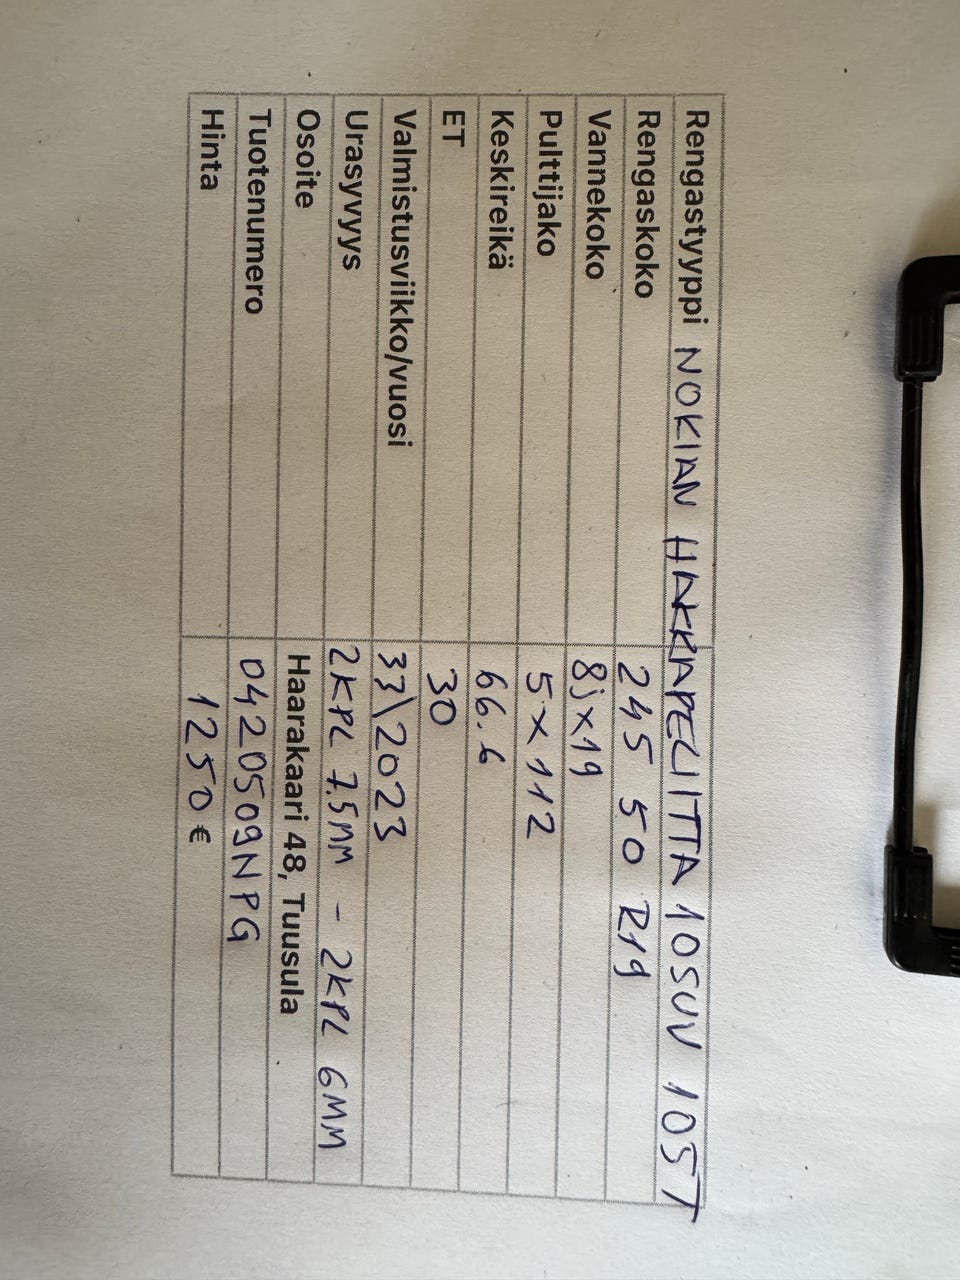 Rengastyyppi NOKIAN HAKKAPELIITTA 10SUV 105T
Rengaskoko 245 50 R19
Vannekoko 8jx19
Pulttijako 5x112
Keskireikä 66.6
ET 30
Valmistusviikko/vuosi 33\2023
Urasyvyys 2KPL 7.5MM - 2KPL 6MM
Osoite Haarakaari 48, Tuusula
Tuotenumero 0420509NPG
Hinta 1250 €